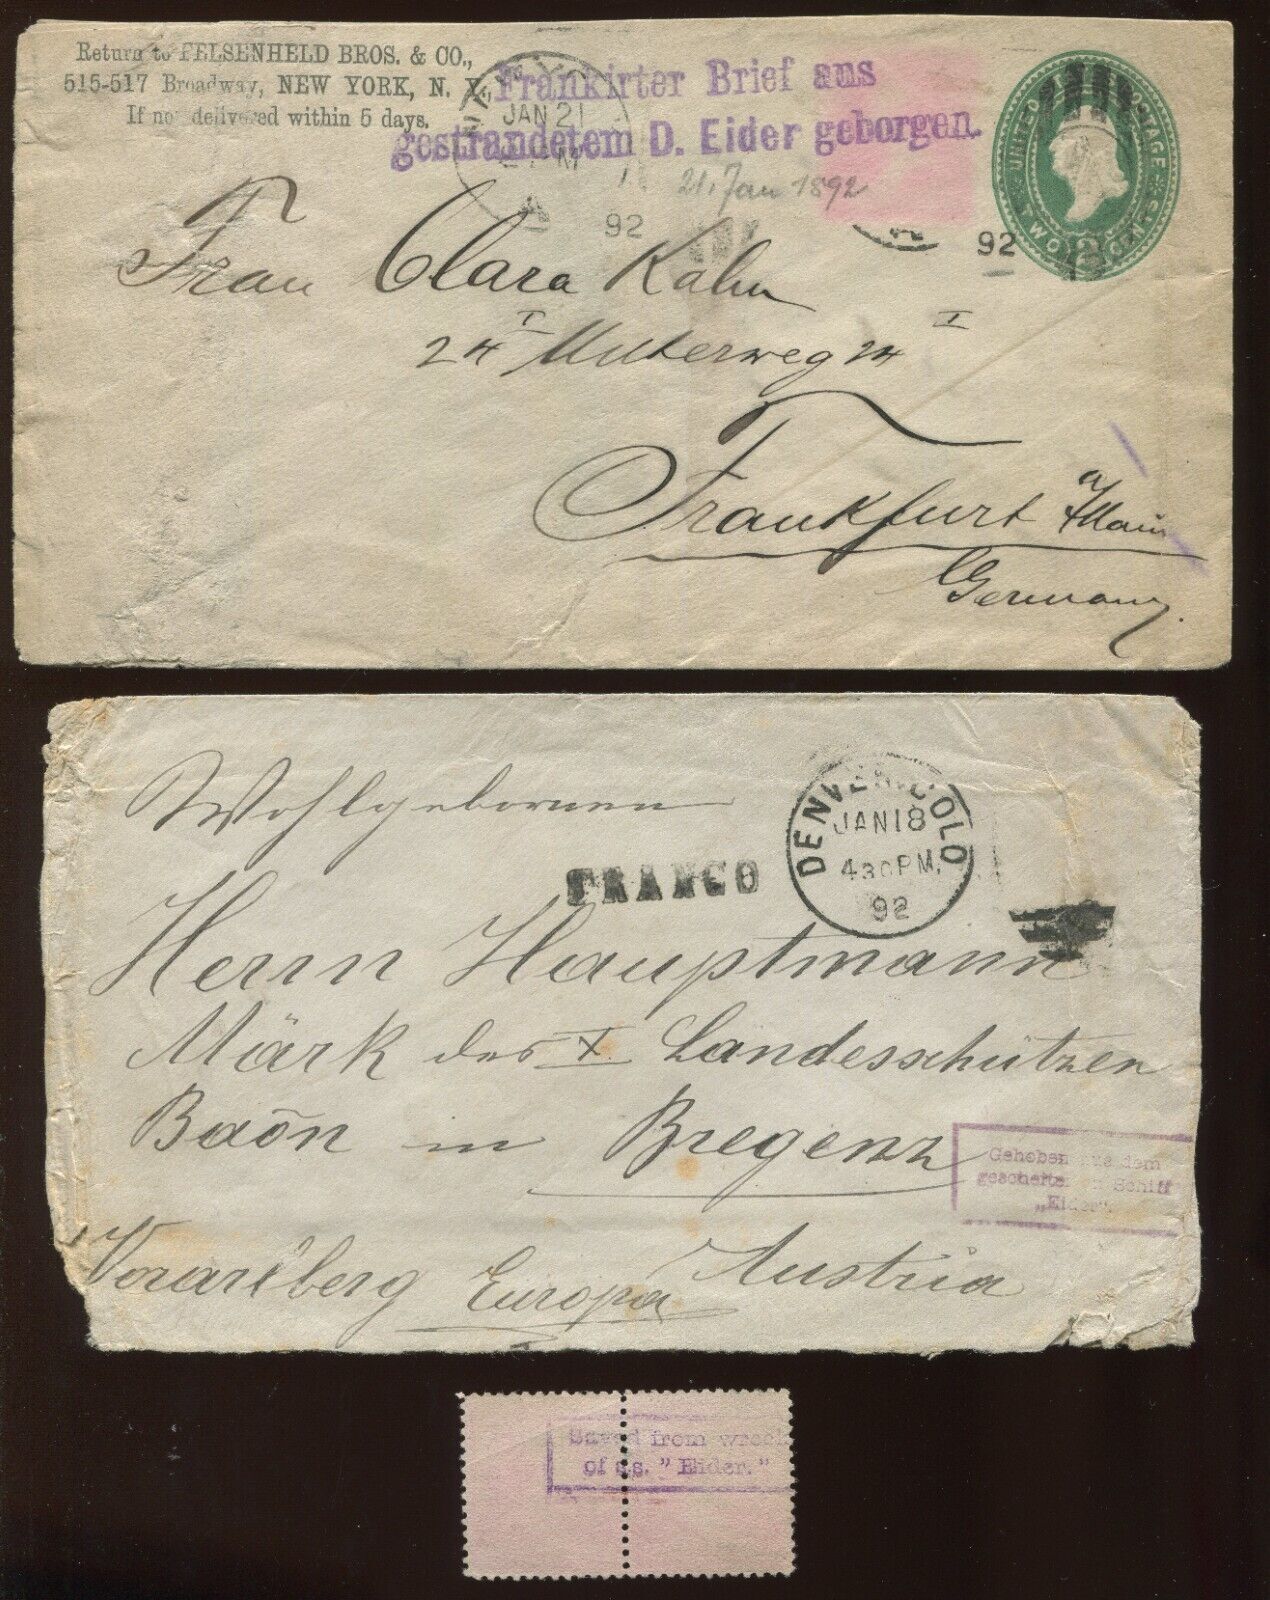 Return to FELSENHELD BROS. & CO.,
515-517 Broadway, NEW YORK, N. Y.,
If not delivered within 5 days.
Frankirter Brief aus
gestrandetem D. Eider geborgen.
JAN 21
92
21. Jan 1892
92
UNITED STATES POSTAGE
TWO CENTS
2
Frau Clara Kahn
24 I Unterweg 24 I
Frankfurt a/Main
Germany.
Wohlgebornen
FRANCO
DENVER, COLO
JAN 18
430 PM,
92
Herrn Hauptmann
Märk des X. Landesschützen
Baõn in Bregenz
Gehoben aus dem
gescheiterten Schiff
„Eider".
Vorarlberg Europa Austria
Saved from wreck
of s.s. "Eider."